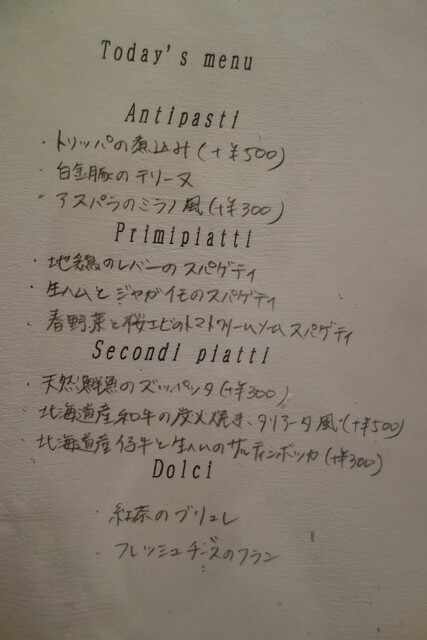 Today's menu
Antipasti
・トリッパの煮込み(+¥500)
・白金豚のテリーヌ
・アスパラのミラノ風(+¥300)
Primipiatti
・地鶏のレバーのスパゲティ
・生ハムとジャガイモのスパゲティ
・春野菜と桜エビのトマトクリームソース スパゲティ
Secondi piatti
・天然鮮魚のズッパッタ(+¥300)
・北海道産和牛の炭火焼き、タリアータ風(+¥500)
・北海道産仔牛と生ハムのサルティンボッカ(+¥300)
Dolci
・紅茶のブリュレ
・フレッシュチーズのフラン